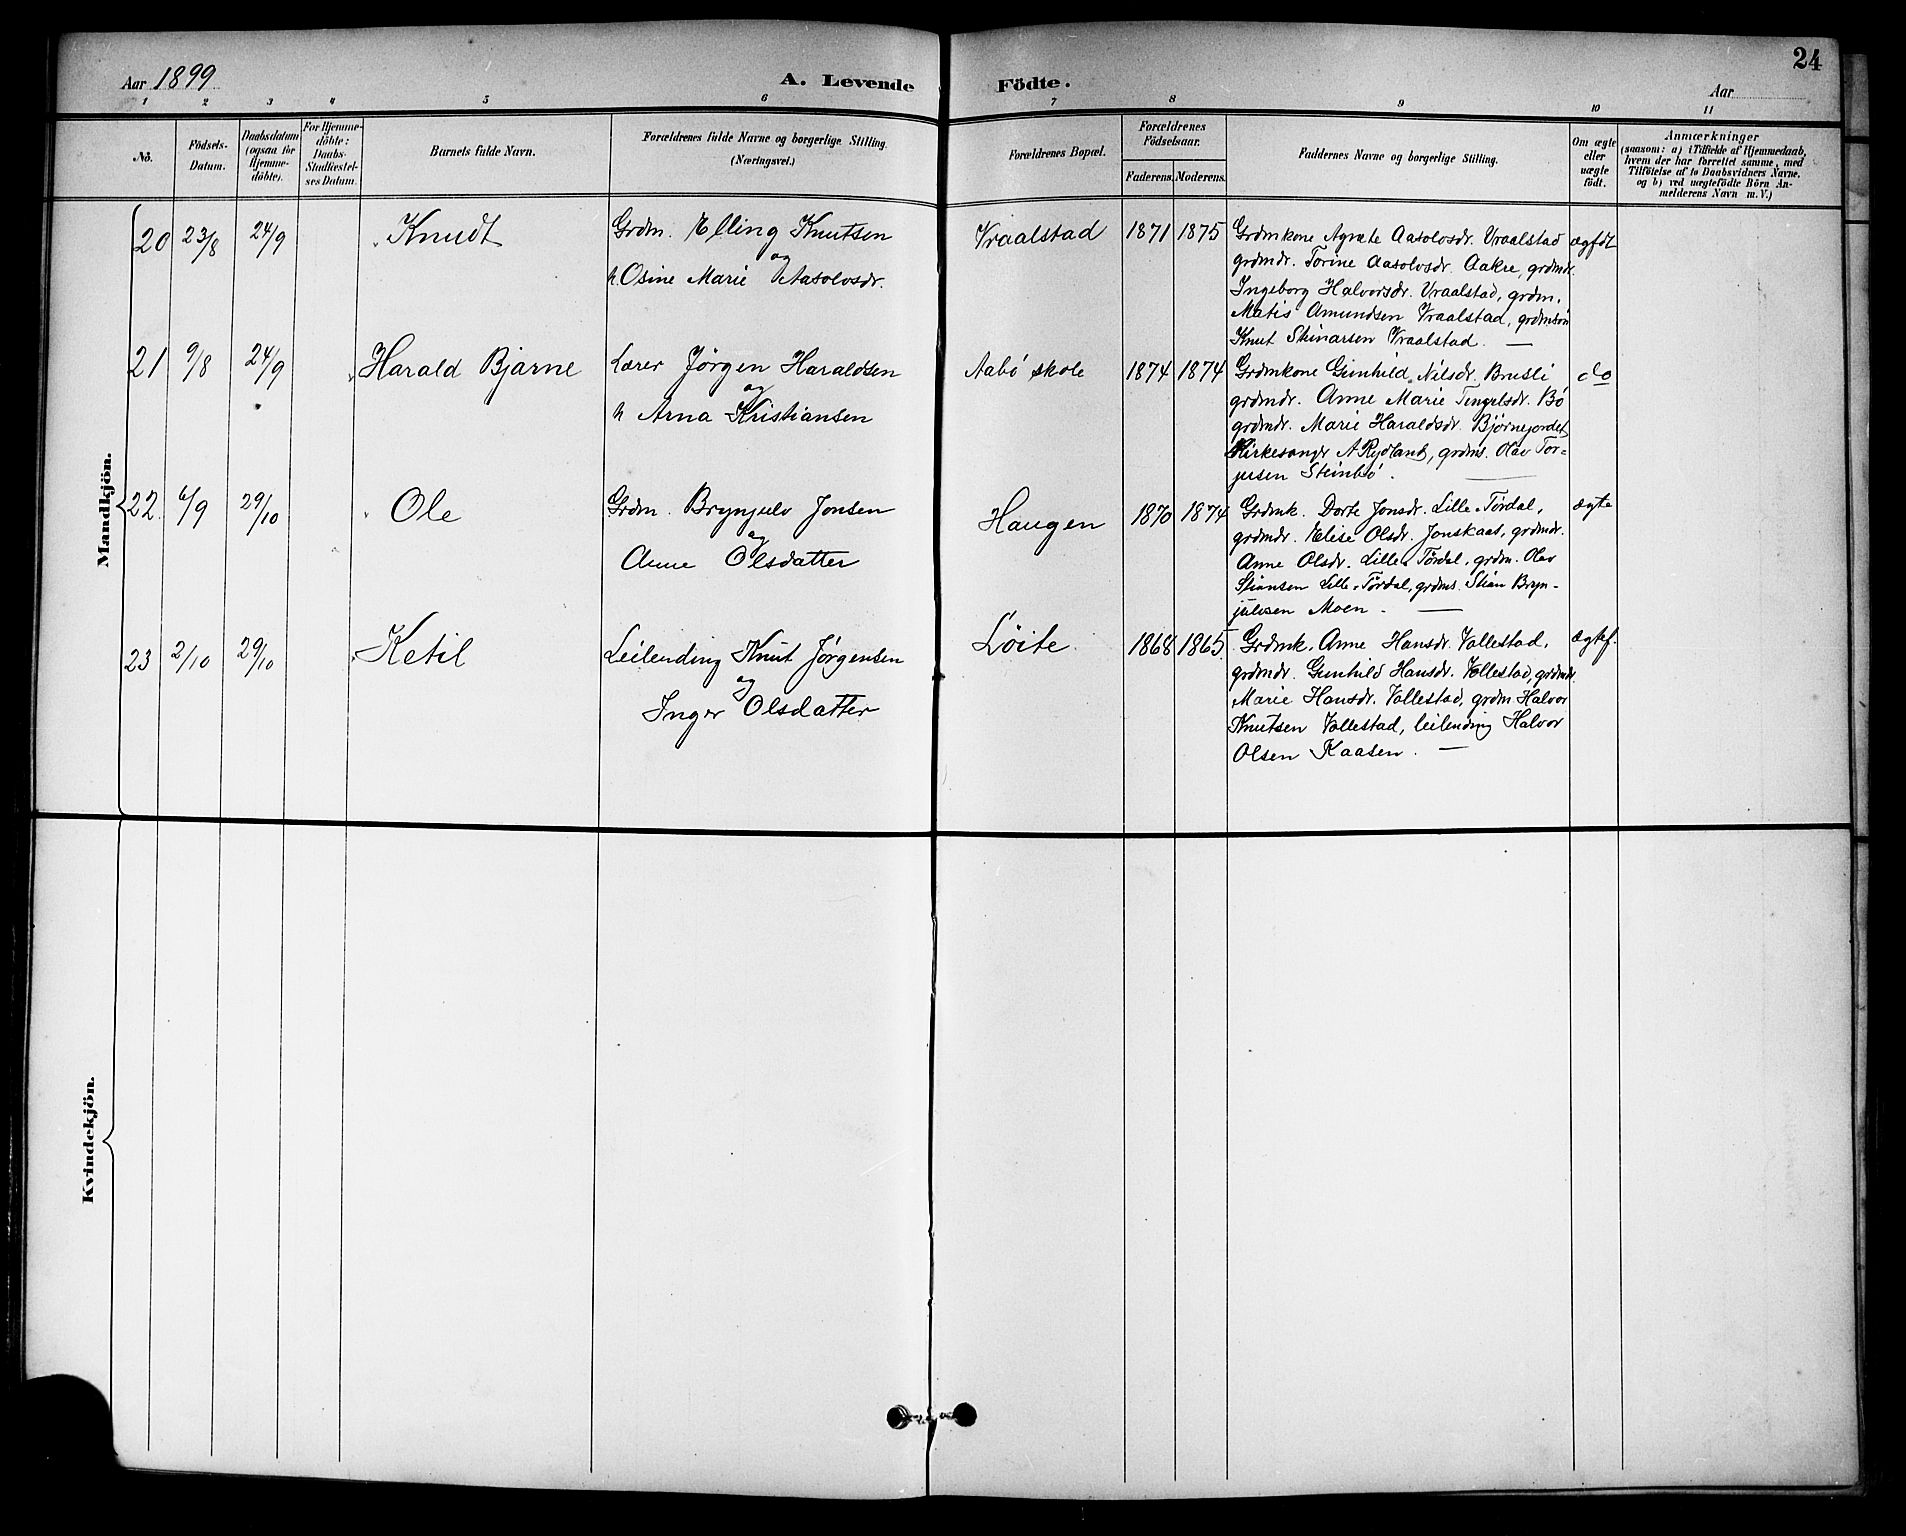 24
Aar 1899
A. Levende Födte.
Aar
1 2 3 4 5 6 7 8 9 10 11
No.
Födsels-
Datum.
Daabsdatum
(ogsaa for
Hjemme-
döbte).
For Hjemme-
döbte:
Daabs-
Stadfæstel-
ses Datum.
Barnets fulde Navn.
Forældrenes fulde Navne og borgerlige Stilling.
(Næringsvei.)
Forældrenes Bopæl.
Forældrenes
Födselsaar.
Faderens. Moderens.
Faddernes Navne og borgerlige Stilling.
Om ægte
eller
uægte
födt.
Anmærkninger
(saasom: a) i Tilfælde af Hjemmedaab,
hvem der har forrettet samme, med
Tilföielse af to Daabsvidners Navne,
og b) ved uægtefödte Börn An-
melderens Navn m. V.)
Mandkjön.
20 23/8 24/9 Knudt
Grdm. Elling Knutsen
og
h. Osine Marie Aasolvsdr.
Vraalstad 1871 1875
Grdmkone Agnete Aasolvsdr. Vraalstad
grdmdr. Torine Aasolvsdr. Aakre, grdmdr.
Ingeborg Halvorsdr. Vraalstad, grdm.
Matis Amundsen Vraalstad, grdmsøn
Knut Steinarsen Vraalstad. —
ægfdt
21 9/8 24/9 Harald Bjarne
Lærer Jörgen Haraldsen
og
h Arna Kristiansen
Aabö skole 1874 1874
Grdmkone Gunhild Nilsdr. Brusli
grdmdr. Anne Marie Tengelsdr. Bö
grdmdr. Marie Haraldsdr. Björnejordet
Kirkesanger A Rydland, grdms. Olav Tor-
jusen Steinbö. —
do
22. 6/9 29/10 Ole
Grdm. Brynjulv Jonsen
og
Anne Olsdatter
Haugen 1870 1874
Grdmk. Dorte Jonsdr. Lille-Tördal,
grdmdr. Elise Olsdr. Jonskaas, grdmdr.
Anne Olsdr. Lille Tördal, grdm. Olav
Stiansen Lille-Tördal, grdms. Stian Bryn-
julvsen Moen. —
ægte
23 2/10 29/10 Ketil
Leilending Knut Jörgensen
og
Inger Olsdatter
Löite. 1868 1865
Grdmk. Anne Hansdr. Vallestad,
grdmdr. Gunhild Hansdr. Vallestad, grdmdr
Marie Hansdr. Vallestad, grdm Halvor
Knutsen Vallestad, leilending Halvor
Olsen Kaasen. —
ægtef.
Kvindekjön.